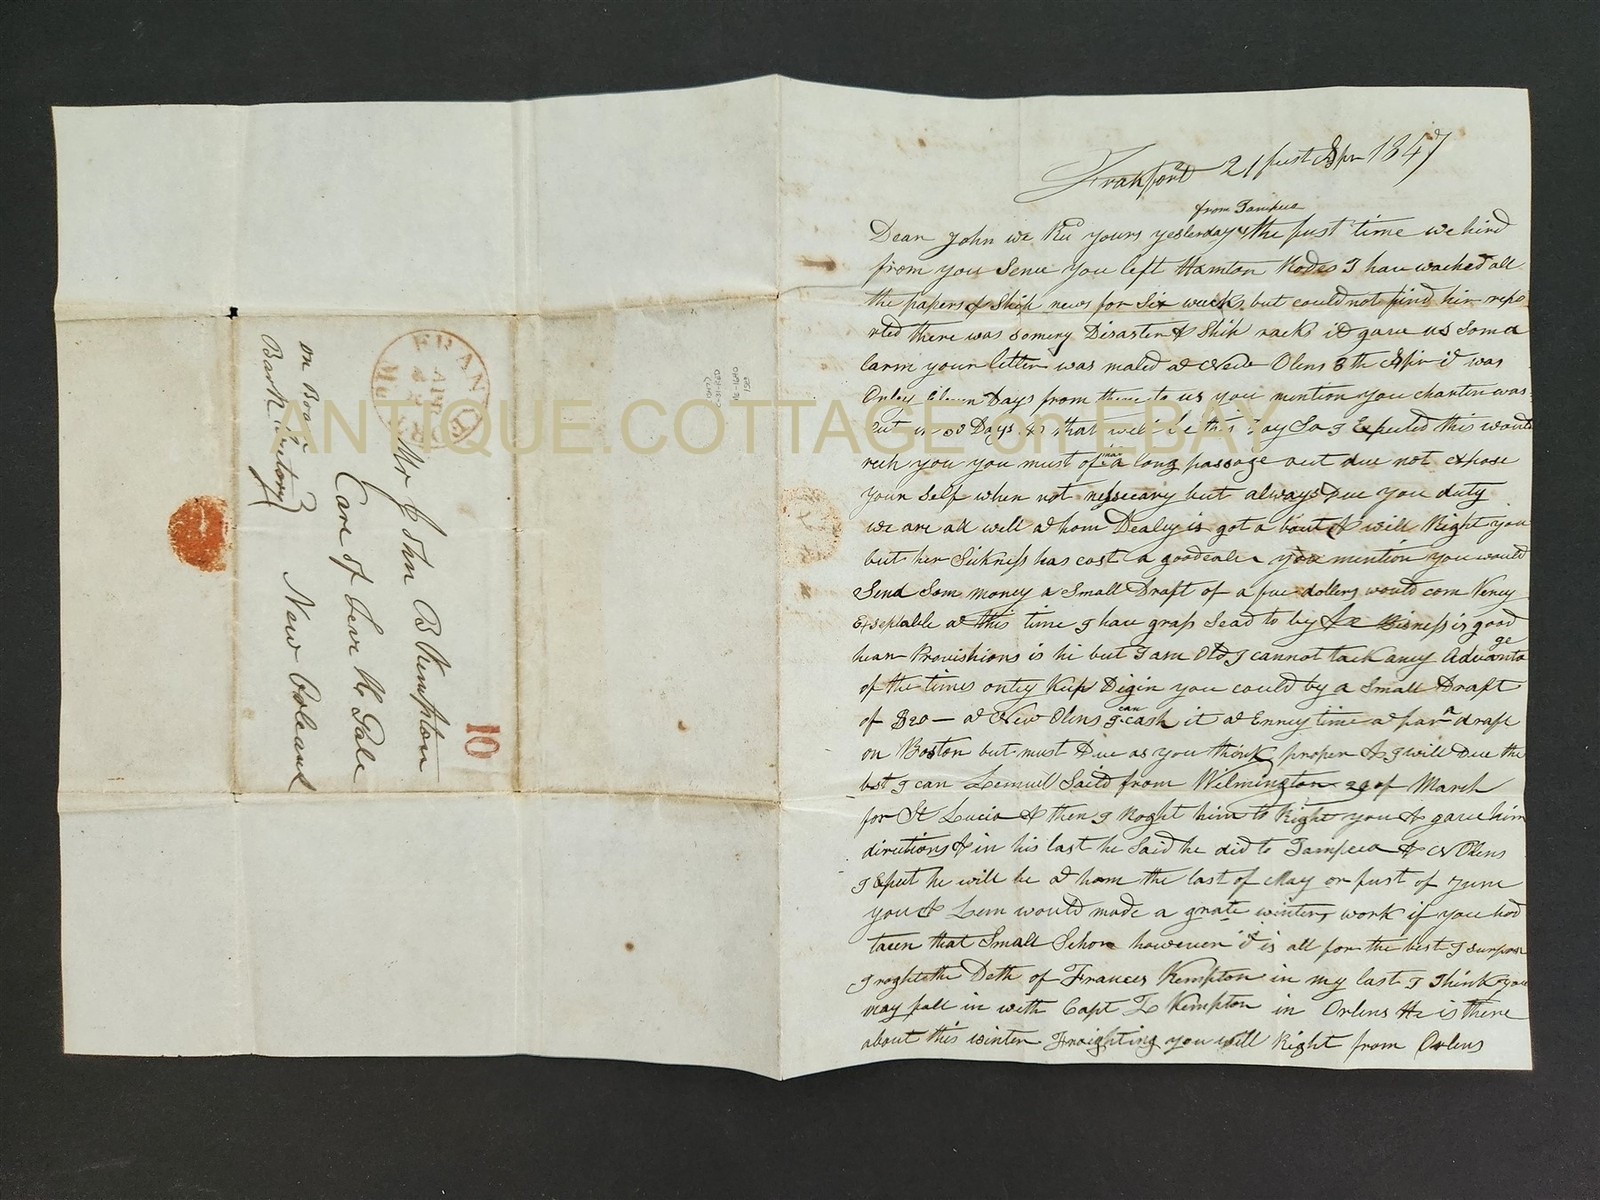 Frakford 21 Apr 1847
from Tampeco
Dear John we Recd yours yesterday the furst time we hird
from you Sence you left Hamton Rodes I have wached all
the papers & Ship news for Six weeks but could not find hir repo
rted there was someny Disasters & Ship racks it gave us Som a
larm your letter was maled at New Olens 8th Apr it was
Onley Eleven Days from there to us you mention you charter was
out in 30 Days & that will be this Day So I Expected this would
rech you you must of a long passage out due not expose
your Self when not nessecary but always Due you duty
we are all well at hom Dealey is got a bout & will Right you
but her Sickness has cost a goodeale you mention you would
Send Som money a Small Draft of a fue dollers would com Very
Exseptable at this time I have grass Sead to by &c Bisness is good
hear Provishions is hi but I am Old I cannot tack aney Advantage
of the times onley Keep Digin you could by a Small Draft
of $20 — at New Olens I can cash it at Enney time at par a draft
on Boston but must Due as you think proper & I will Due the
best I can Lemuel Saild from Wilmington 29 of March
for St Lucia & then I Roght him to Right you & gave him
directions & in his last he Said he did to Tampeco & N Olens
I Expect he will be at hom the last of May or furst of June
you & Lem would made a grate winters work if you had
tacen that Small Schore however it is all for the best I surpose
I roght the Deth of Frances Kempton in my last I Think you
may fall in with Capt Z Kempton in Orlens He is there
about this winter Fraighting you will Right from Orlens
FRANKFORT
APR
Me
10
Mr John B Kempton
Care of Levi H Gale
New Orleans
on Board
Bark
ANTIQUE.COTTAGE on EBAY